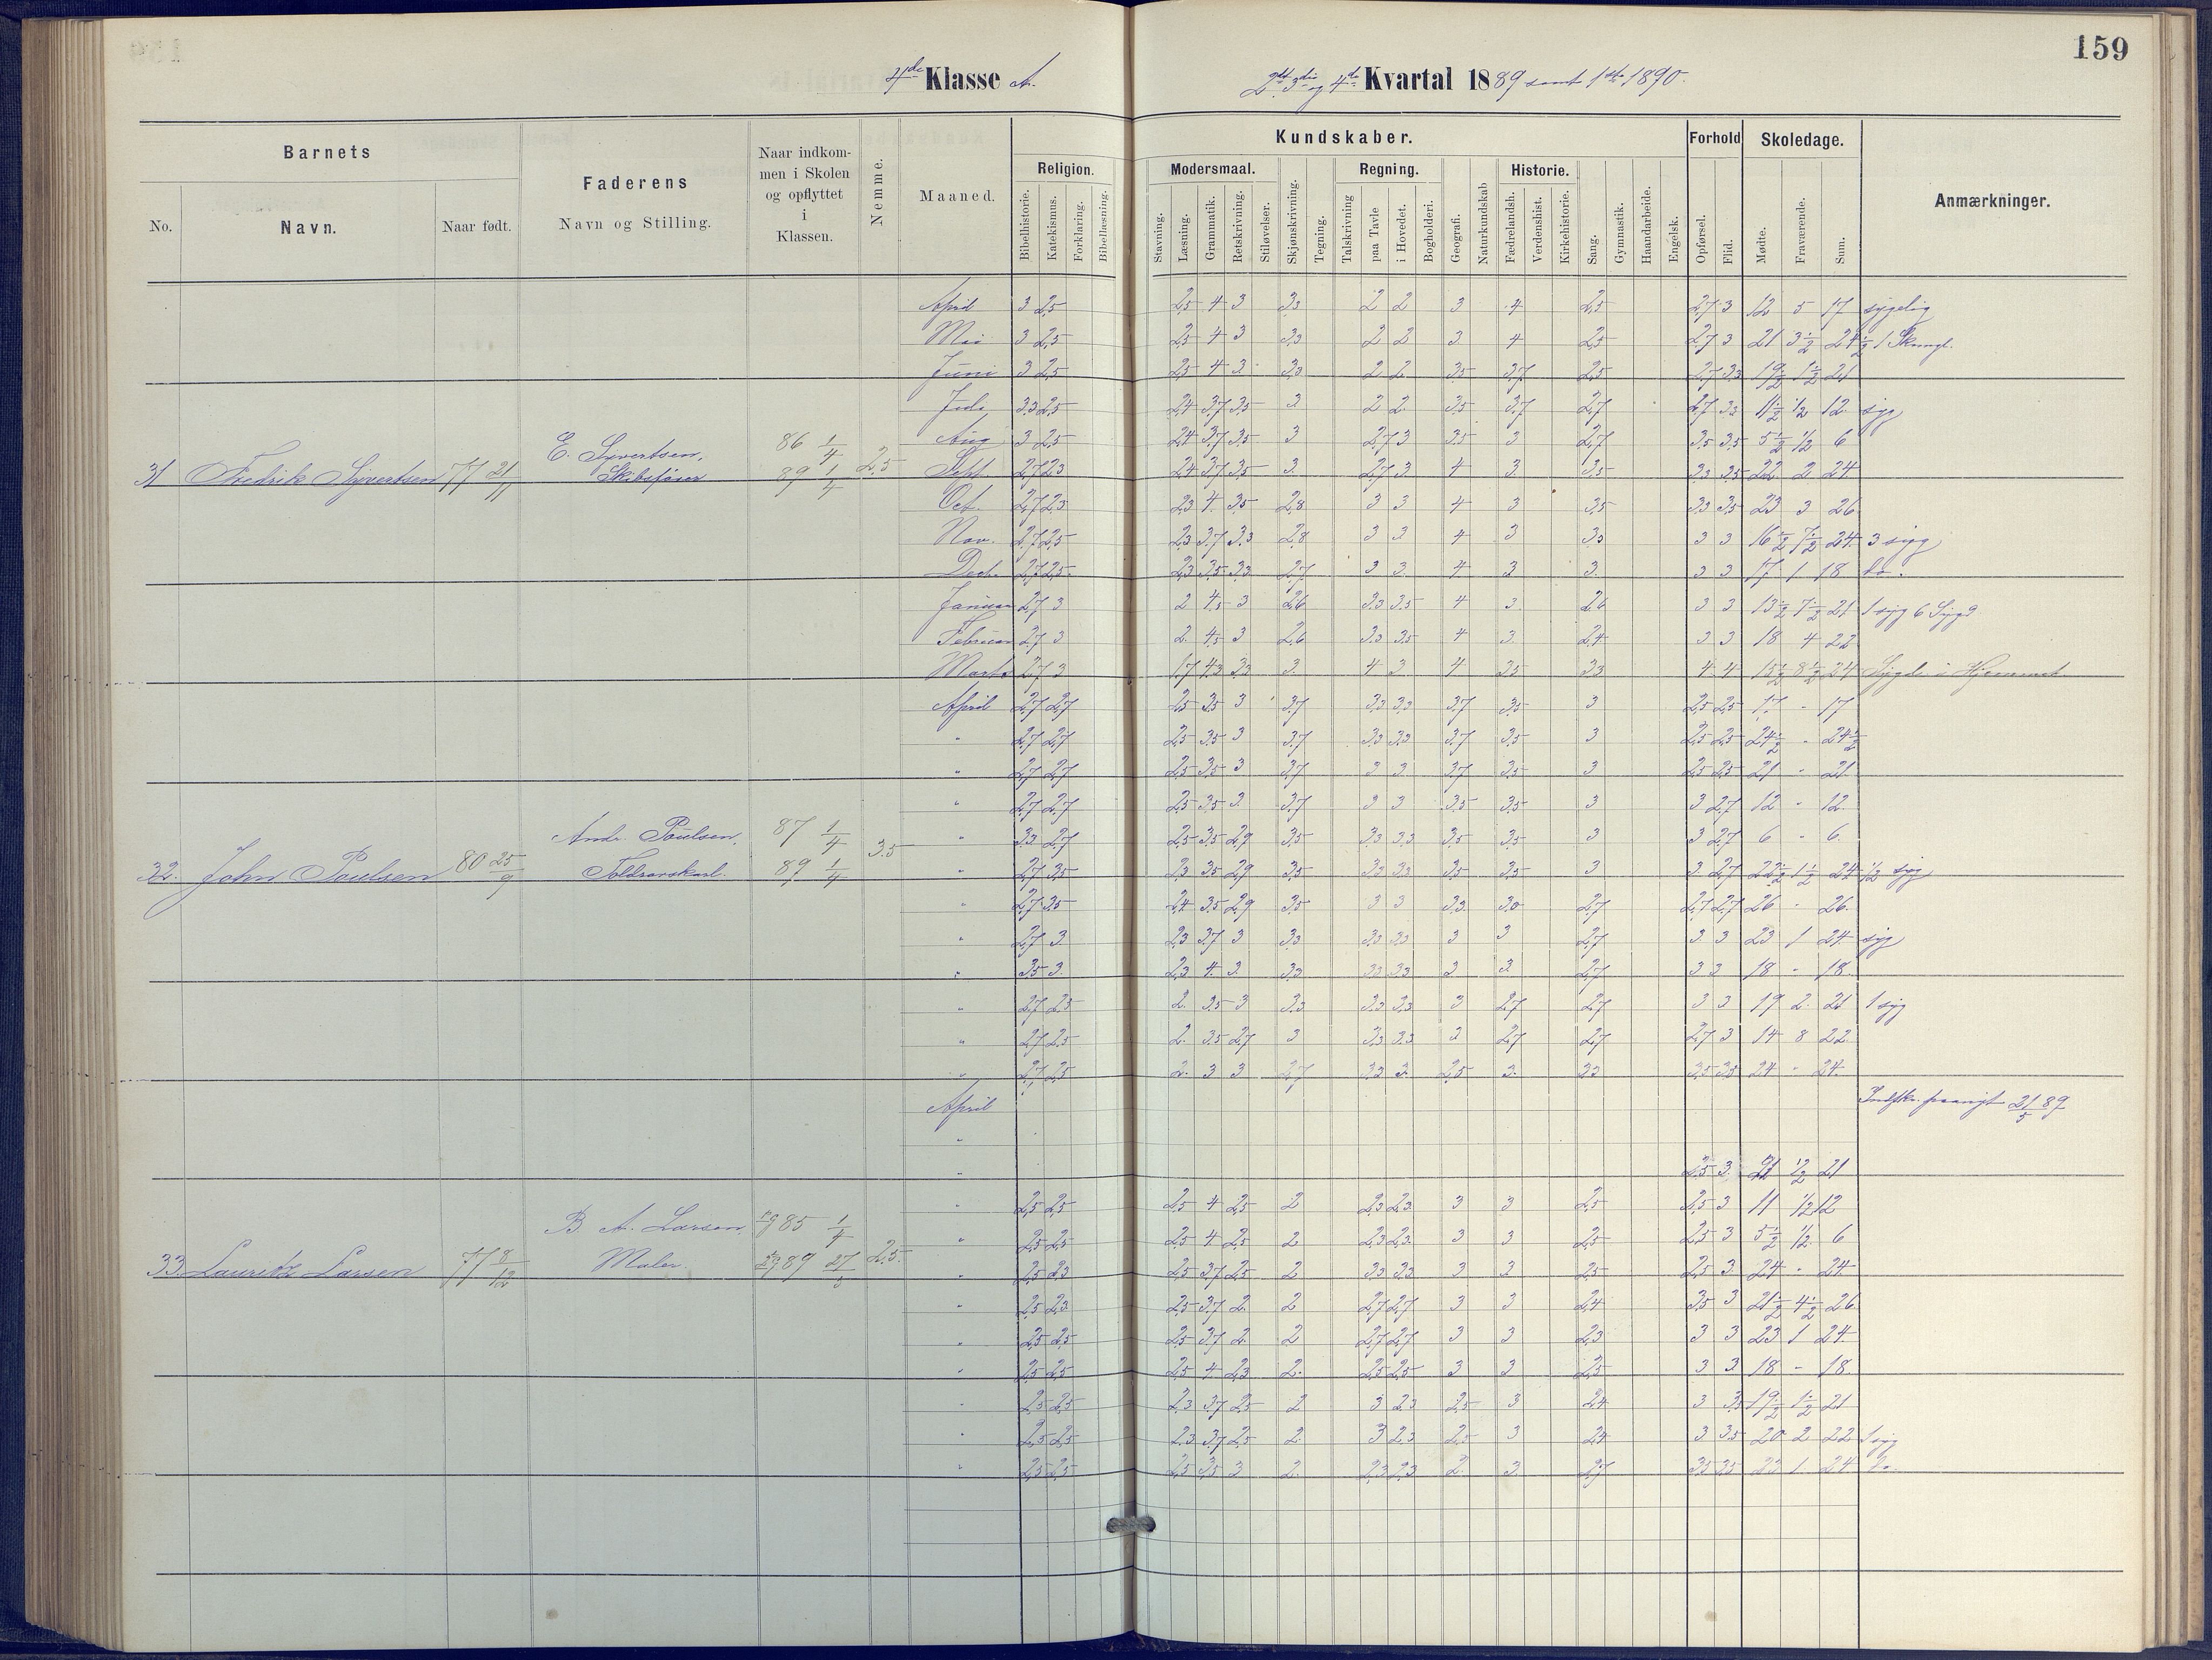 159
4de Klasse A.
2det 3die og 4de Kvartal 1889 samt 1ste 1890.
Barnets
No.
Navn.
Naar født.
Faderens
Navn og Stilling.
Naar indkom-
men i Skolen
og opflyttet
i
Klassen.
Nemme.
Maaned.
Kundskaber.
Religion.
Bibelhistorie.
Katekismus.
Forklaring.
Bibellæsning.
Modersmaal.
Stavning.
Læsning.
Grammatik.
Retskrivning.
Stiløvelser.
Skjønskrivning.
Tegning.
Regning.
Talskrivning
paa Tavle
i Hovedet.
Bogholderi.
Geografi.
Naturkundskab
Historie.
Fædrelandsh.
Verdenshist.
Kirkehistorie.
Sang.
Gymnastik.
Haandarbeide.
Engelsk.
Forhold
Opførsel.
Flid.
Skoledage.
Mødte.
Fraværende.
Sum.
Anmærkninger.
April 3 2,5 2,5 4 3 3,3 2 2 3 4 2,5 2,7 3 12 5 17 sygelig
Mai 3 2,5 2,5 4 3 3,3 2 2 3 4 2,5 2,7 3 21 3½ 24½
Juni 3 2,5 2,5 4 3 3,3 2 2 3,5 3,7 2,5 2,7 3,3 19½ 1½ 21
Juli 3,3 2,5 2,4 3,7 3,5 3 2 2 3,5 3,7 2,7 2,7 3,3 11½ ½ 12 syg
Aug 3 2,5 2,4 3,7 3,5 3 2,7 3 3,5 3 2,7 3,5 3,5 5½ ½ 6
31 Fredrik Syvertsen 77 21/11 E. Syvertsen, Skibsfører 86 1/4 89 1/4 2,5
Sept 2,7 2,3 2,4 3,7 3,5 3 2,7 3 4 3 3,5 3,3 3,5 22 2 24
Oct. 2,7 2,3 2,3 4 3,5 2,8 3 3 4 3 3,5 3,3 3,5 23 3 26
Nov. 2,7 2,5 2,3 3,7 3,3 2,8 3 3 4 3 3,3 3 3 16½ 7½ 24 3 syg
Decb. 2,7 2,5 2,3 3,5 3,3 2,7 3 3 4 3 3 3 3 17 1 18 do.
Januar 2,7 3 2 4,5 3 2,6 3,3 3,5 4 3 2,6 3 3 13½ 7½ 21 1 syg 6 Sygd
Februar 2,7 3 2 4,5 3 2,6 3,3 3,5 4 3 2,4 3 3 18 4 22
Marts 2,7 3 1,7 4,3 3,3 3 4 3 4 3,5 3,3 4 4 15½ 8½ 24 Sygd. i Hjemmet
April 2,7 2,7 2,5 3,5 3 3,7 3,3 3,3 3,7 3,5 3 2,5 2,5 17 - 17
" 2,7 2,7 2,5 3,5 3 3,7 3,3 3,3 3,7 3,5 3 2,5 2,5 24½ - 24½
" 2,7 2,7 2,5 3,5 3 3,7 3 3 3,7 3,5 3 2,5 2,5 21 - 21
" 2,7 2,7 2,5 3,5 3 3,7 3 3 3,5 3,5 3 3 2,7 12 - 12
" 3,3 2,7 2,5 3,5 2,9 3,5 3,3 3,3 3,5 3,5 3 3 2,7 6 - 6
32. John Poulsen 80 25/9 Andr. Poulsen, Toldrorskarl. 87 1/4 89 1/4 3,5
" 2,7 3,5 2,3 3,5 2,9 3,5 3,3 3,3 3,5 3,5 3 3 2,7 22½ 1½ 24 ½ syg
" 2,7 3,5 2,4 3,5 2,9 3,5 3 3 3,3 3,0 2,7 2,7 2,7 26 - 26
" 2,7 3 2,3 3,7 3 3,3 3,3 3,3 3 3 2,7 3 3 23 1 24 syg
" 3,5 3 2,3 4 3 3,3 3,3 3,3 3 3 2,7 3 3 18 - 18
" 2,7 2,5 2 3,5 3 3,3 3,3 3,3 3 2,7 2,7 3 3 19 2 21 1 syg
" 2,7 2,5 2 3,5 2,7 3 3,3 3,3 3 2,7 2,7 2,7 3 14 8 22
" 2,7 2,5 2 3 3 2,7 3,3 3 2,5 3 3,3 3,5 3,5 24 - 24
April 21/5 89
"
" 2,5 3 21 ½ 21
" 2,5 2,5 2,5 4 2,5 2 2,3 2,3 3 3 2,5 2,5 3 11 ½ 12
" 2,5 2,5 2,5 4 2,5 2 2,3 2,3 3 3 2,5 2,5 3 5½ ½ 6
33. Lauritz Larsen 77 8/12 B A. Larsen, Maler. 85 1/4 89 2,5
" 2,5 2,3 2,5 3,7 2,5 2 3,3 3,3 3 3 2,5 2,5 3 24 - 24
" 2,5 2,3 2,5 3,7 2 2 2,7 2,7 3 3 2,4 3,5 3 21½ 4½ 26
" 2,5 2,5 2,5 3,7 2 2 2,7 2,7 3 3 2,3 3 3 23 1 24
" 2,5 2,5 2,5 4 2,3 2 2,5 2,5 3 3 2,5 3 3 18 - 18
" 2,5 2,5 2,3 3,7 2,5 2 3 2,3 2,5 3 2,4 3 3,5 19½ 1½ 21
" 2,5 2,5 2,3 3,7 2,5 2 3 2,3 2,5 3 2,4 3 3,5 20 2 22 1 syg
" 2,5 2,5 2,5 3,5 3 2 2,3 2,3 2 3 2,7 3,5 3,5 23 1 24 do.